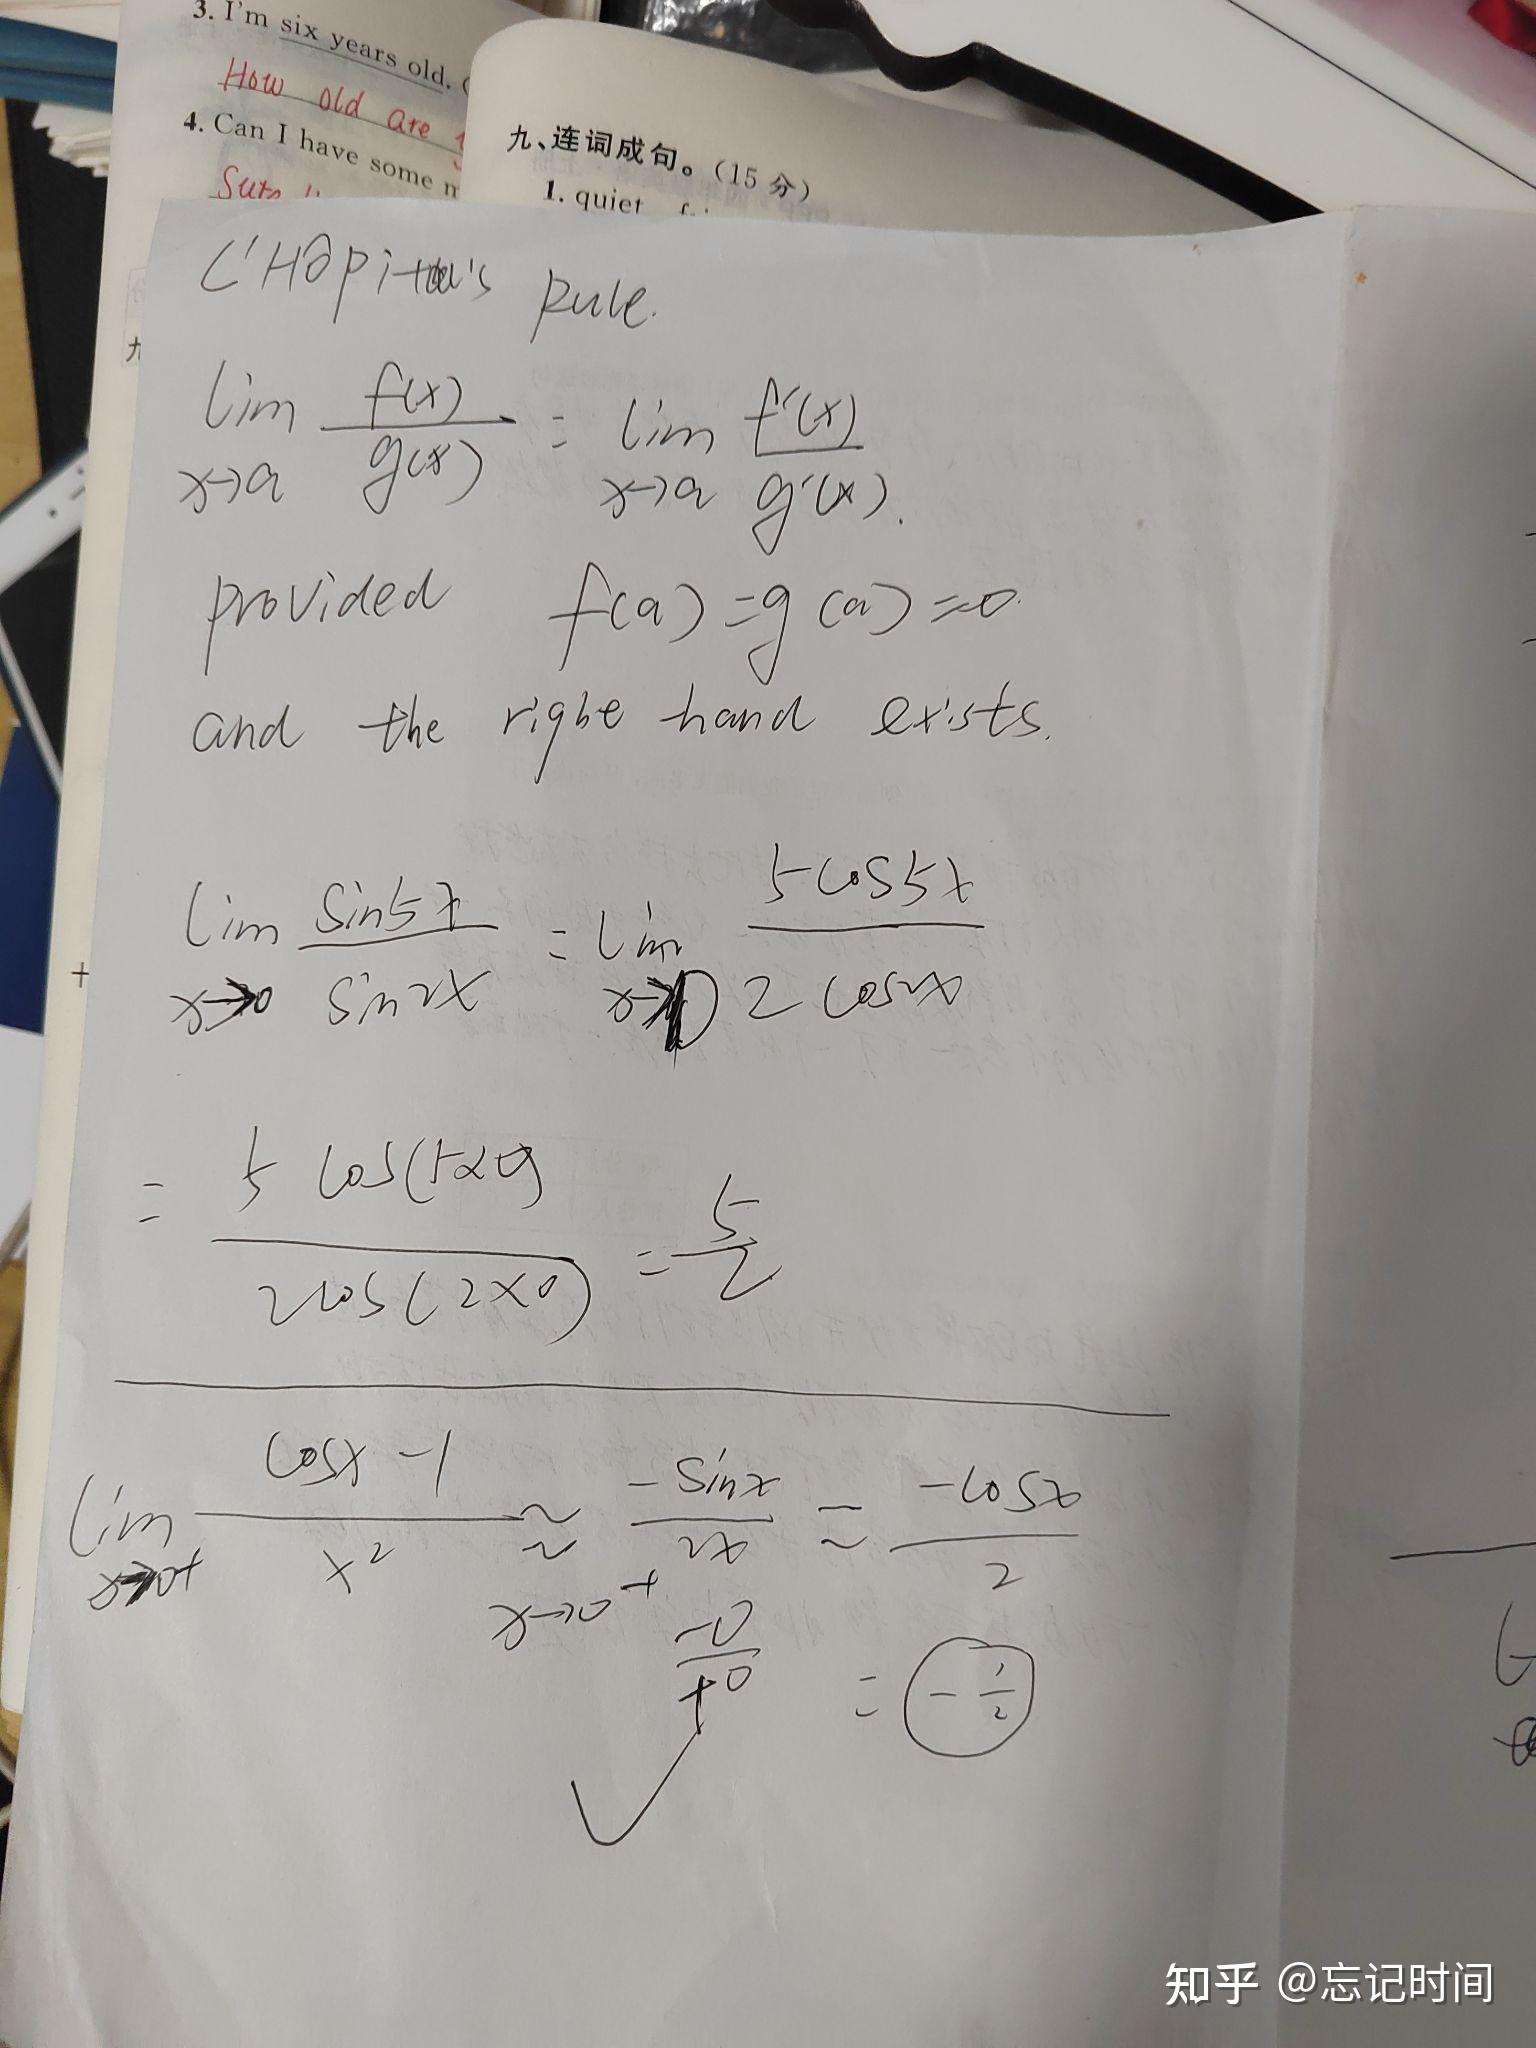 3. I'm six years old. (
How old are
4. Can I have some m
九、连词成句。(15 分)
1. quiet
L'Hôpital's Rule.
lim x→a f(x)/g(x) = lim x→a f'(x)/g'(x).
provided f(a)=g(a)=0.
and the right hand exists.
lim x→0 sin5x/sin2x = lim x→0 5cos5x/2cos2x
= 5cos(5×0)/2cos(2×0) = 5/2
lim x→0+ cosx-1/x² ≈ x→0+ -sinx/2x ≈ -cosx/2
-0/+0 = -1/2
知乎 @忘记时间